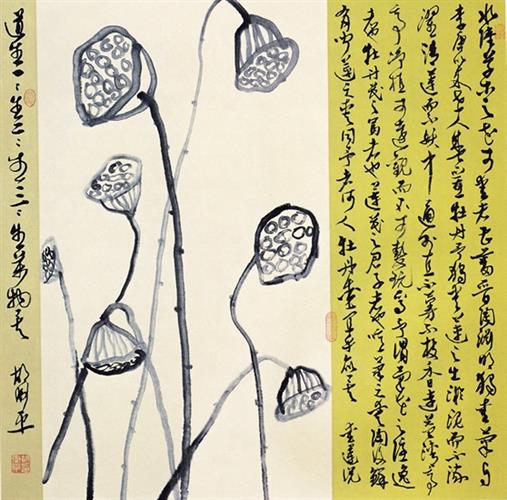 水陸草木之花可愛者甚蕃晉陶淵明獨愛菊自
李唐以來世人甚愛牡丹予獨愛蓮之出淤泥而不染
濯清漣而不妖中通外直不蔓不枝香遠益清亭
亭淨植可遠觀而不可褻玩焉予謂菊花之隱逸
者牡丹花之富者也蓮花之君子者也噫菊之愛陶後鮮
有聞蓮之愛同予者何人牡丹之愛宜乎眾矣 愛蓮說
道生一〻生二〻生三〻生萬物矣